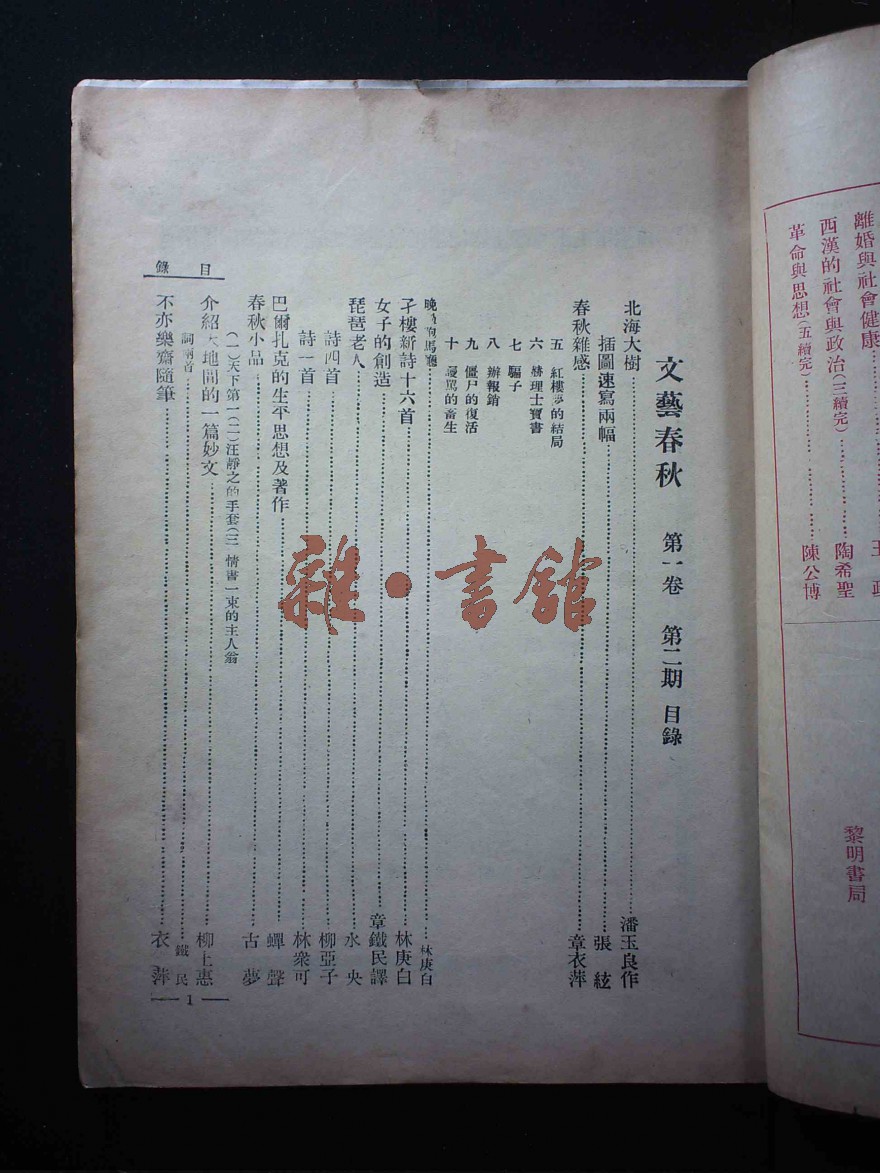 離婚與社會健康
西漢的社會與政治(三續完)陶希聖
革命與思想(五續完)陳公博
黎明書局
文藝春秋 第一卷 第二期 目錄
北海大樹 潘玉良作
插圖速寫兩幅 張絃
春秋雜感 章衣萍
五 紅樓夢的結局
六 赫理士寶書
七 騙子
八 辦報銷
九 僵尸的復活
十 謾罵的畜生
林庚白
孑樓新詩十六首 林庚白
女子的創造 章鐵民譯
琵琶老人 水央
詩四首 柳亞子
詩一首 林衆可
巴爾扎克的生平思想及著作 蟬聲
春秋小品 古夢
(一)天下第一(二)汪靜之的手套(三 情書一束的主人翁
介紹大地間的一篇妙文 柳上惠
詞兩首 鐵民
不亦樂齋隨筆 衣萍
目錄
1
雜·書館